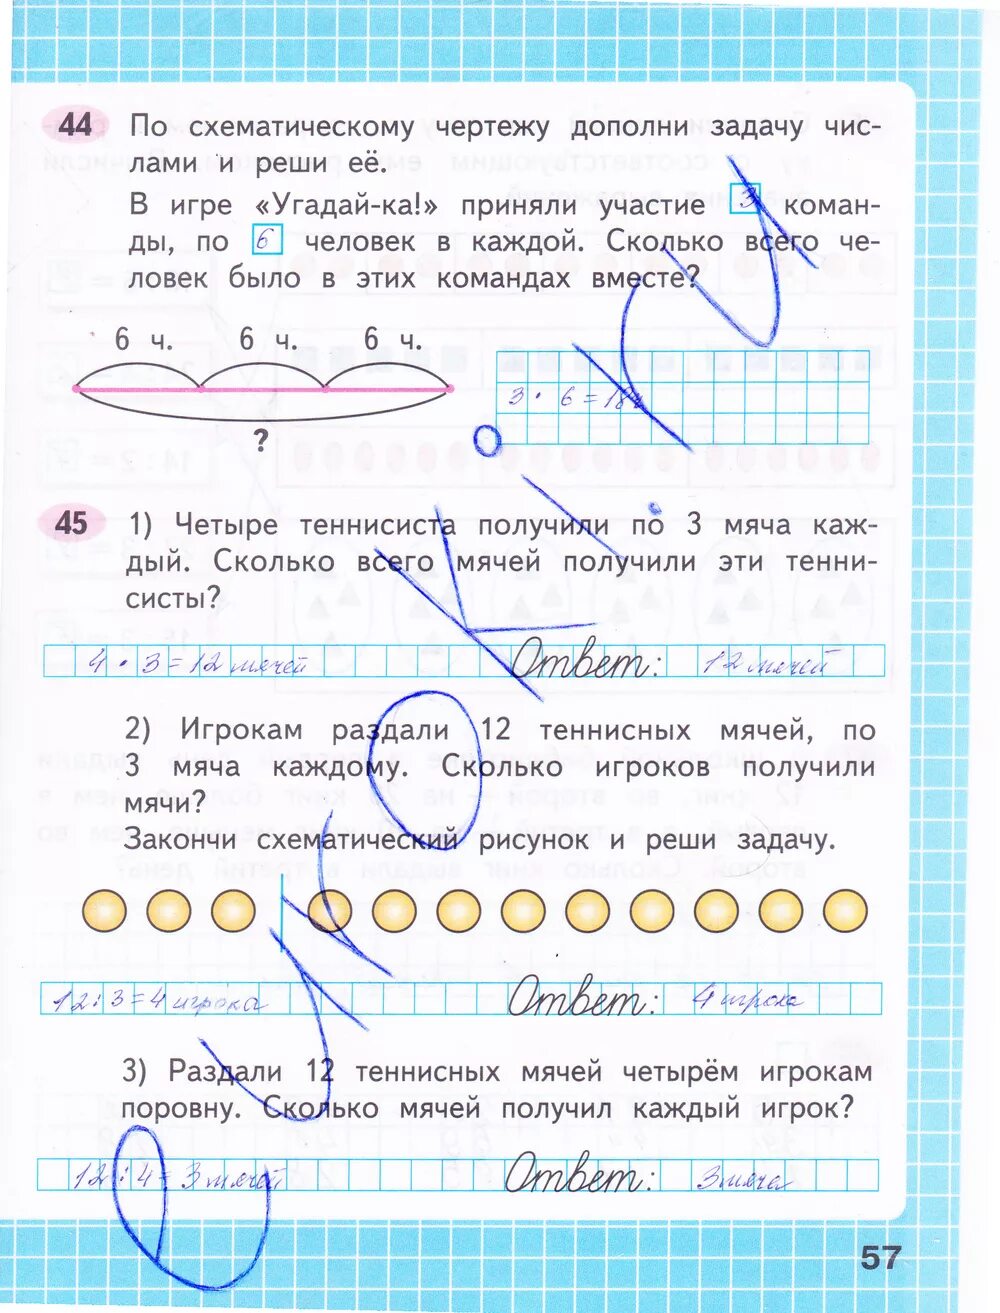 44 По схематическому чертежу дополни задачу чис-
лами и реши её.
В игре «Угадай-ка!» приняли участие 3 коман-
ды, по 6 человек в каждой. Сколько всего че-
ловек было в этих командах вместе?
6 ч. 6 ч. 6 ч.
?
3 · 6 = 18ч
45 1) Четыре теннисиста получили по 3 мяча каж-
дый. Сколько всего мячей получили эти тенни-
систы?
4 · 3 = 12 мячей Ответ: 12 мячей
2) Игрокам раздали 12 теннисных мячей, по
3 мяча каждому. Сколько игроков получили
мячи?
Закончи схематический рисунок и реши задачу.
12 : 3 = 4 игрока Ответ: 4 игрока
3) Раздали 12 теннисных мячей четырём игрокам
поровну. Сколько мячей получил каждый игрок?
12 : 4 = 3 мячей Ответ: 3 мяча
57